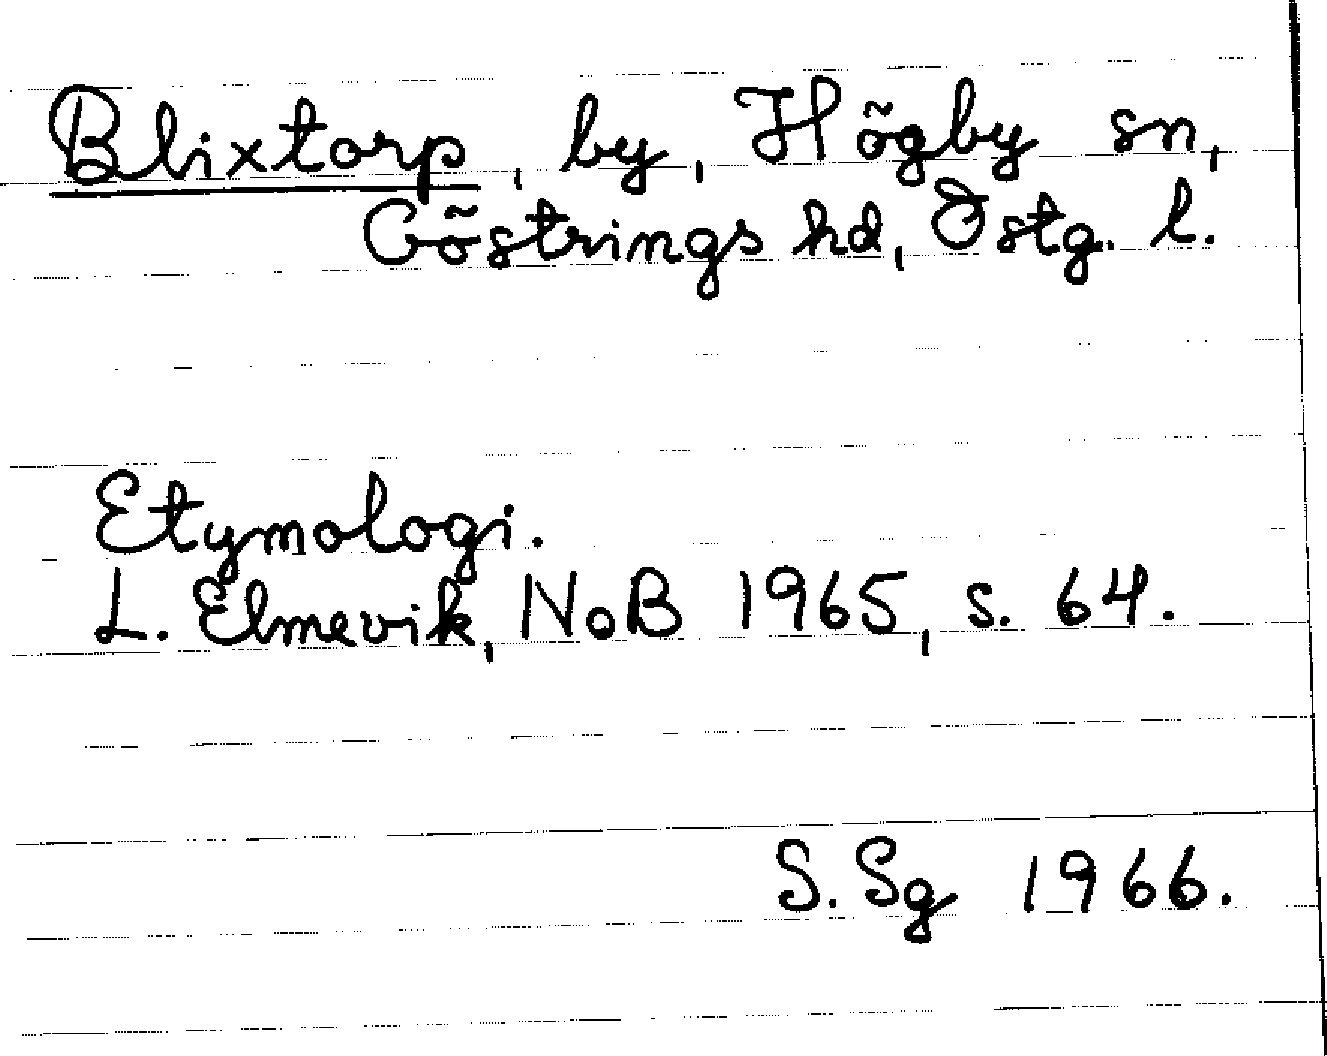 Blixtorp, by, Högby sn,
Göstrings hd, Östg. l.
Etymologi.
L. Elmevik, NoB 1965, s. 64.
S. Sg 1966.